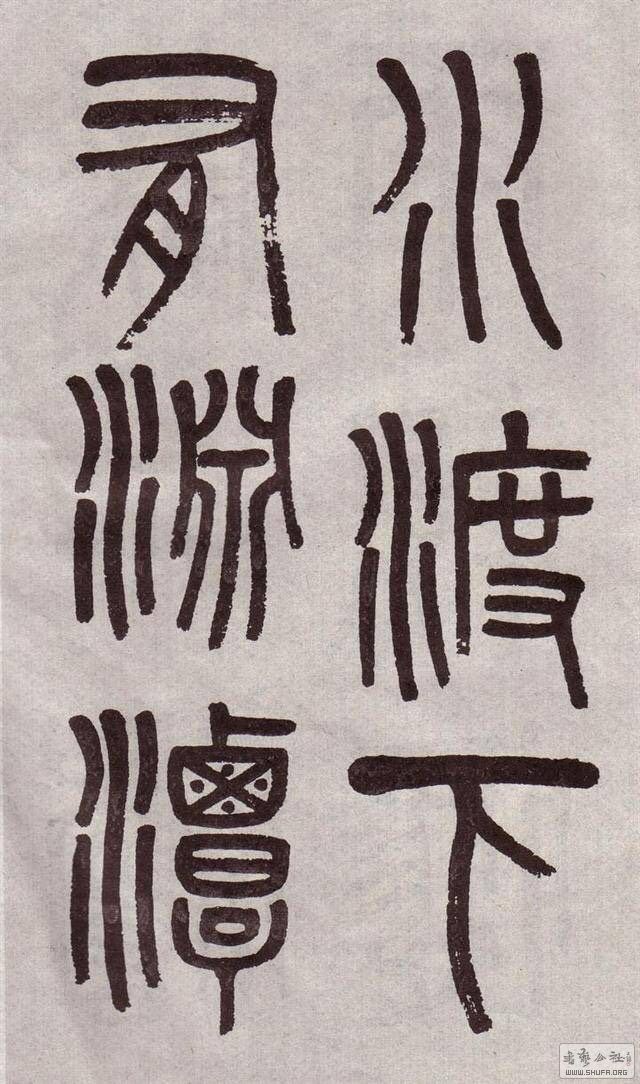 水渡下
有潭
书艺公社
WWW.SHUFA.ORG